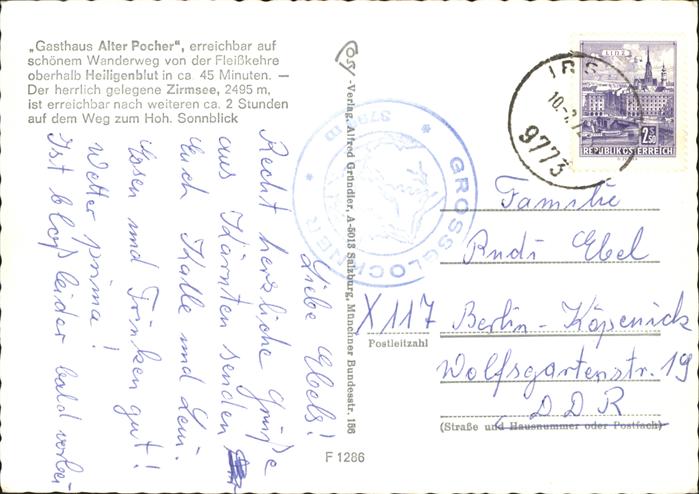 „Gasthaus Alter Pocher“, erreichbar auf
schönem Wanderweg von der Fleißkehre
oberhalb Heiligenblut in ca. 45 Minuten. —
Der herrlich gelegene Zirmsee, 2495 m,
ist erreichbar nach weiteren ca. 2 Stunden
auf dem Weg zum Hoh. Sonnblick
Liebe Ebels!
Recht herzliche Grüße
aus Kärnten senden
Euch Kalle und
Essen und Trinken gut!
Wetter prima!
Ist bloß leider bald vorbei
-Verlag, Alfred Gründler, A-5013 Salzburg, Münchner Bundesstr. 156
GROSSGLOCKNER
3798 m
LINZ
2.50
REPUBLIK ÖSTERREICH
9773
Familie
Rudi Ebel
X 117 Berlin-Köpenick
Postleitzahl
Wolfsgartenstr. 19
DDR
(Straße und Hausnummer oder Postfach)
F 1286